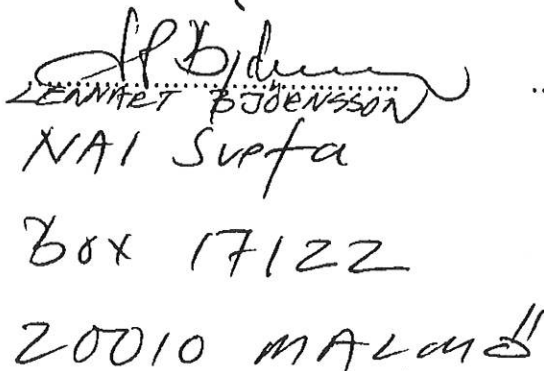 LENNART BJÖRNSSON
NAI Svefa
Box 17122
20010 MALMÖ